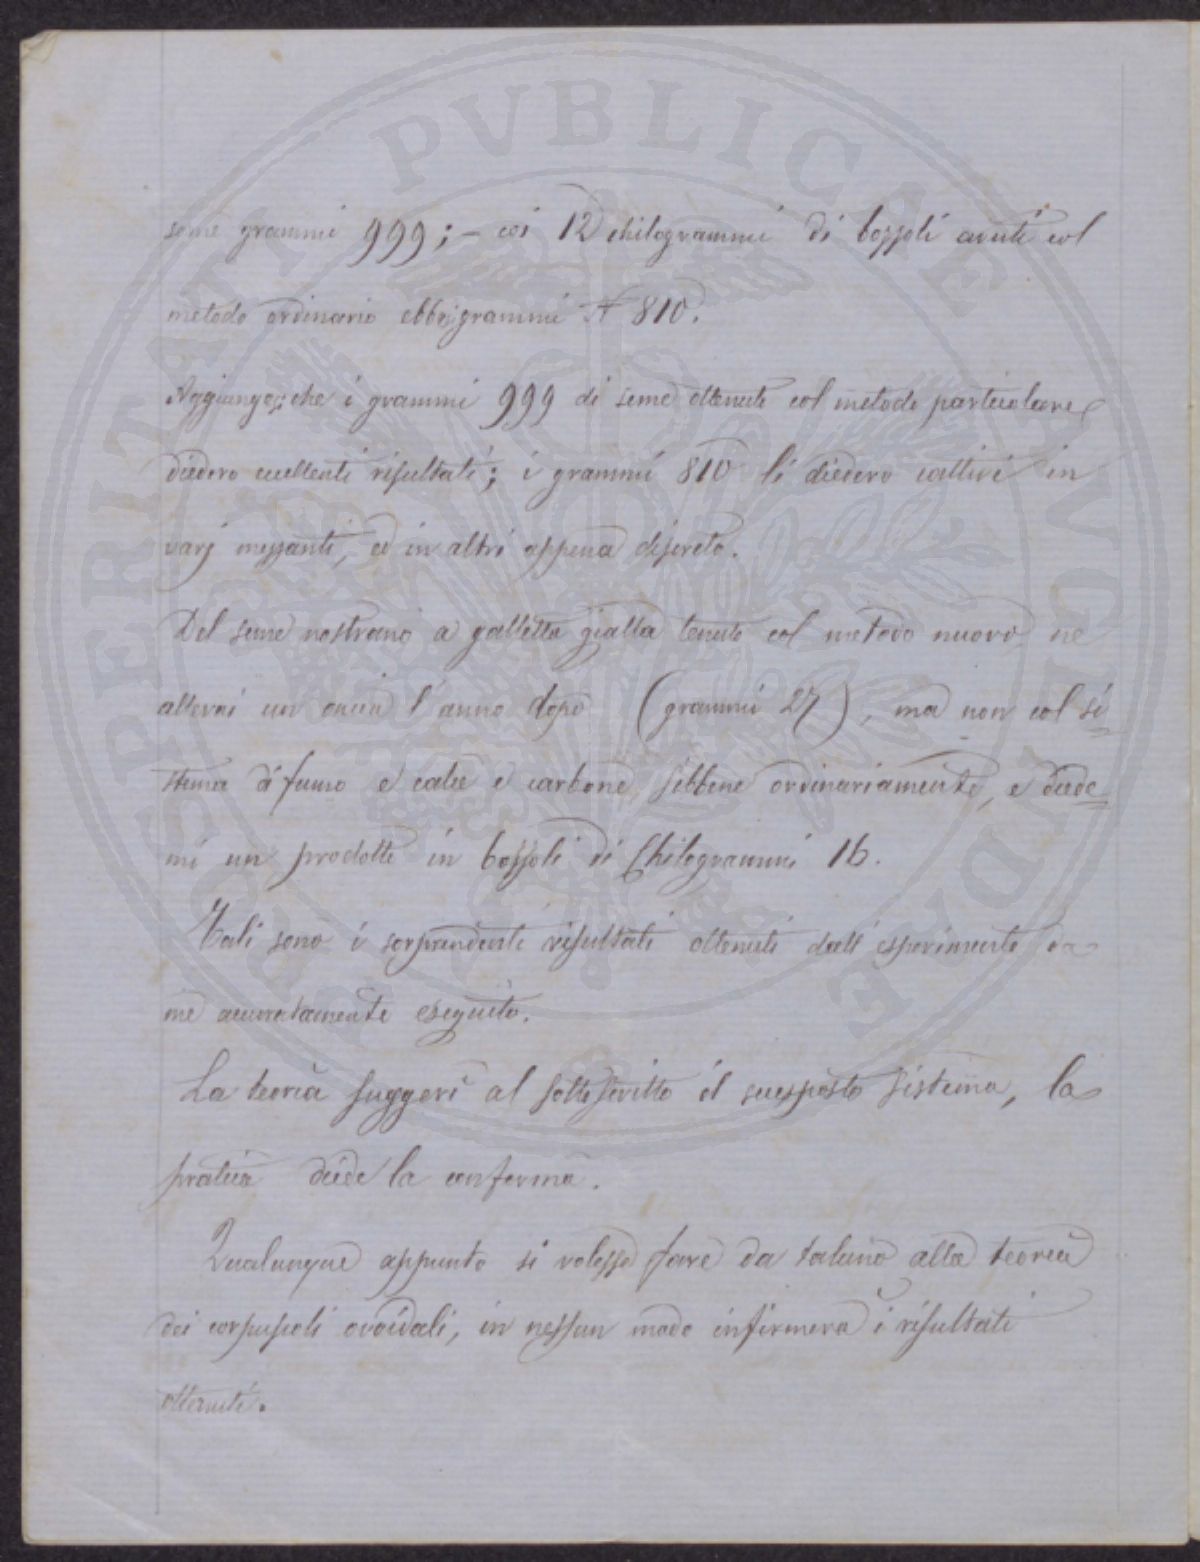 seme grammi 999; – cosi 12 chilogrammi di bozzoli avuti col
metodo ordinario ebbi grammi N 810.
Aggiungesi che i grammi 999 di seme ottenuti col metodo particolare
diedero eccellenti risultati; i grammi 810 li diedero cattivi in
varj mezzanti, ed in altri appena discreto.
Del seme nostrano a galletta gialla tenuto col metodo nuovo ne
allevai un oncia l'anno dopo (grammi 27), ma non col si
stema di fumo e calce e carbone, sebbene ordinariamente, e diede
mi un prodotto in bozzoli di Chilogrammi 16.
Tali sono i sorprendenti risultati ottenuti dall'esperimento da
me accuratamente eseguito.
La teoria suggerì al sottoscritto il suesposto sistema, la
pratica diede la conferma.
Qualunque appunto si volesse fare da taluno alla teoria
dei corpuscoli ovoidali, in nessun modo infirmerà i risultati
ottenuti.
PROSPERITATI PVBLICAE AVGENDAE